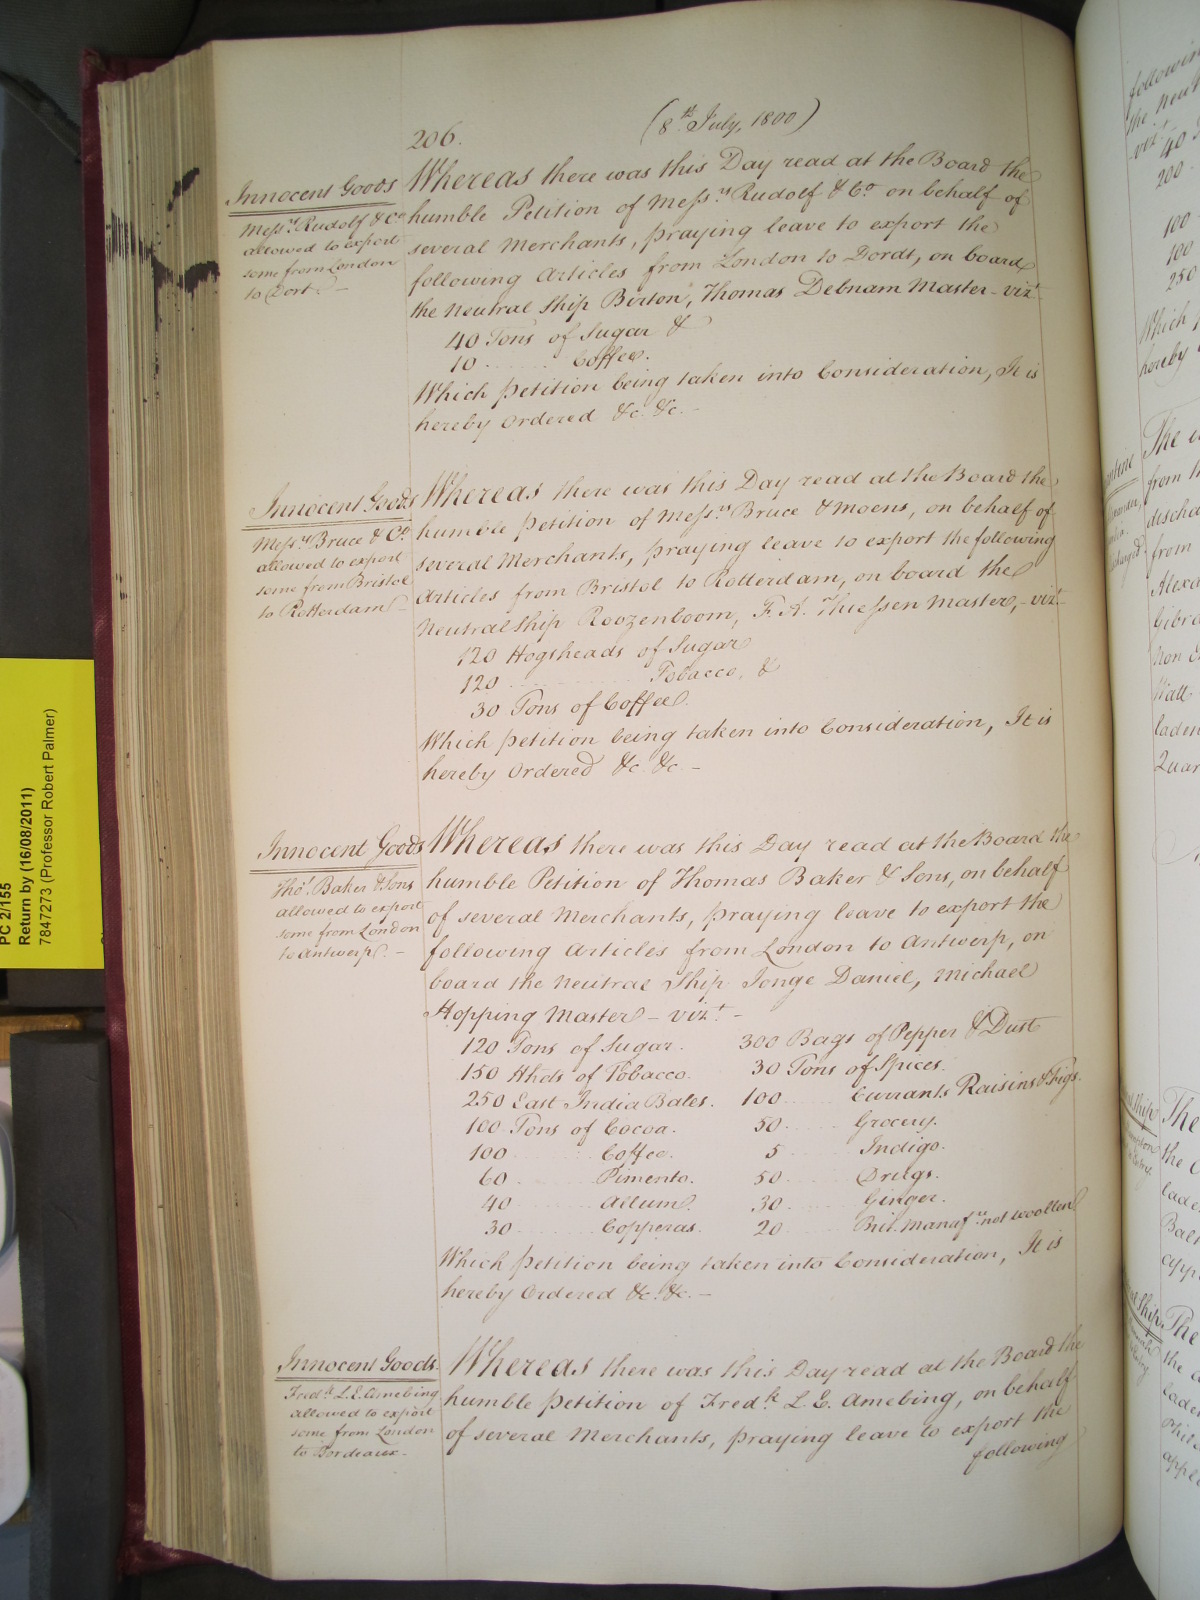 206.
(8th July, 1800)
Innocent Goods
Messrs Rudolf & Co
allowed to export
some from London
to Dort. -
Whereas there was this Day read at the Board the
humble Petition of Messrs Rudolf & Co on behalf of
several Merchants, praying leave to export the
following Articles from London to Dordt, on board
the Neutral Ship Birton, Thomas Debnam Master - vizt
40 Tons of Sugar &
10 ...... Coffee.
Which petition being taken into Consideration, It is
hereby Ordered &c. &c. -
Innocent Goods
Messrs Bruce & Co
allowed to export
some from Bristol
to Rotterdam -
Whereas there was this Day read at the Board the
humble petition of Messrs Bruce & Moens, on behalf of
several Merchants, praying leave to export the following
Articles from Bristol to Rotterdam, on board the
Neutral Ship Roozenboom, F. A. Thiessen Master, - vizt
120 Hogsheads of Sugar
120 ............ Tobacco, &
30 Tons of Coffee.
Which petition being taken into Consideration, It is
hereby Ordered &c. &c. -
Innocent Goods
Thos. Baker & Sons
allowed to export
some from London
to Antwerp. -
Whereas there was this Day read at the Board the
humble Petition of Thomas Baker & Sons, on behalf
of several Merchants, praying leave to export the
following Articles from London to Antwerp, on
board the Neutral Ship Jonge Daniel, Michael
Hopping Master - vizt -
120 Tons of Sugar. 300 Bags of Pepper & Dust
150 Hhds of Tobacco. 30 Tons of Spices.
250 East India Bales. 100 ...... Currants Raisins & Figs.
100 Tons of Cocoa. 50 ...... Grocery.
100 ........ Coffee. 5 ...... Indigo.
60 ........ Pimento. 50 ...... Drugs.
40 ........ Allum. 30 ...... Ginger.
30 ........ Copperas. 20 ...... Brit. Manufrs not woollen
Which petition being taken into Consideration, It is
hereby Ordered &c. &c. -
Innocent Goods.
Fredk L. E. Amebing
allowed to export
some from London
to Bordeaux. -
Whereas there was this Day read at the Board the
humble petition of Fredk L. E. Amebing, on behalf
of several Merchants, praying leave to export the
following
PC 2/155
Return by (16/08/2011)
7847273 (Professor Robert Palmer)